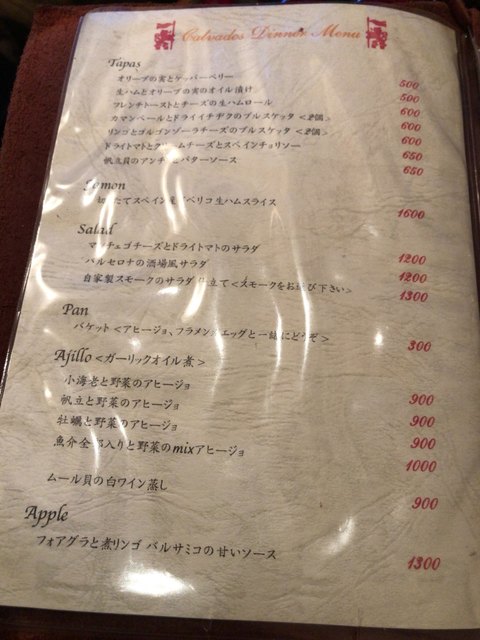 Calvados Dinner Menu
Tapas
オリーブの実とケッパーベリー 500
生ハムとオリーブの実のオイル漬け 500
フレンチトーストとチーズの生ハムロール 600
カマンベールとドライイチヂクのブルスケッタ <2個> 600
リンゴとゴルゴンゾーラチーズのブルスケッタ <2個> 600
ドライトマトとクリームチーズとスペインチョリソー 650
帆立貝のアンチョビバターソース 650
Jamon
切りたてスペイン産イベリコ生ハムスライス 1600
Salad
マンチェゴチーズとドライトマトのサラダ 1200
バルセロナの酒場風サラダ 1200
自家製スモークのサラダ仕立て<スモークをお選び下さい> 1300
Pan
バケット <アヒージョ、フラメンカエッグと一緒にどうぞ> 300
Ajillo <ガーリックオイル煮>
小海老と野菜のアヒージョ 900
帆立と野菜のアヒージョ 900
牡蠣と野菜のアヒージョ 900
魚介全部入りと野菜のmixアヒージョ 1000
ムール貝の白ワイン蒸し 900
Apple
フォアグラと煮リンゴ バルサミコの甘いソース 1300